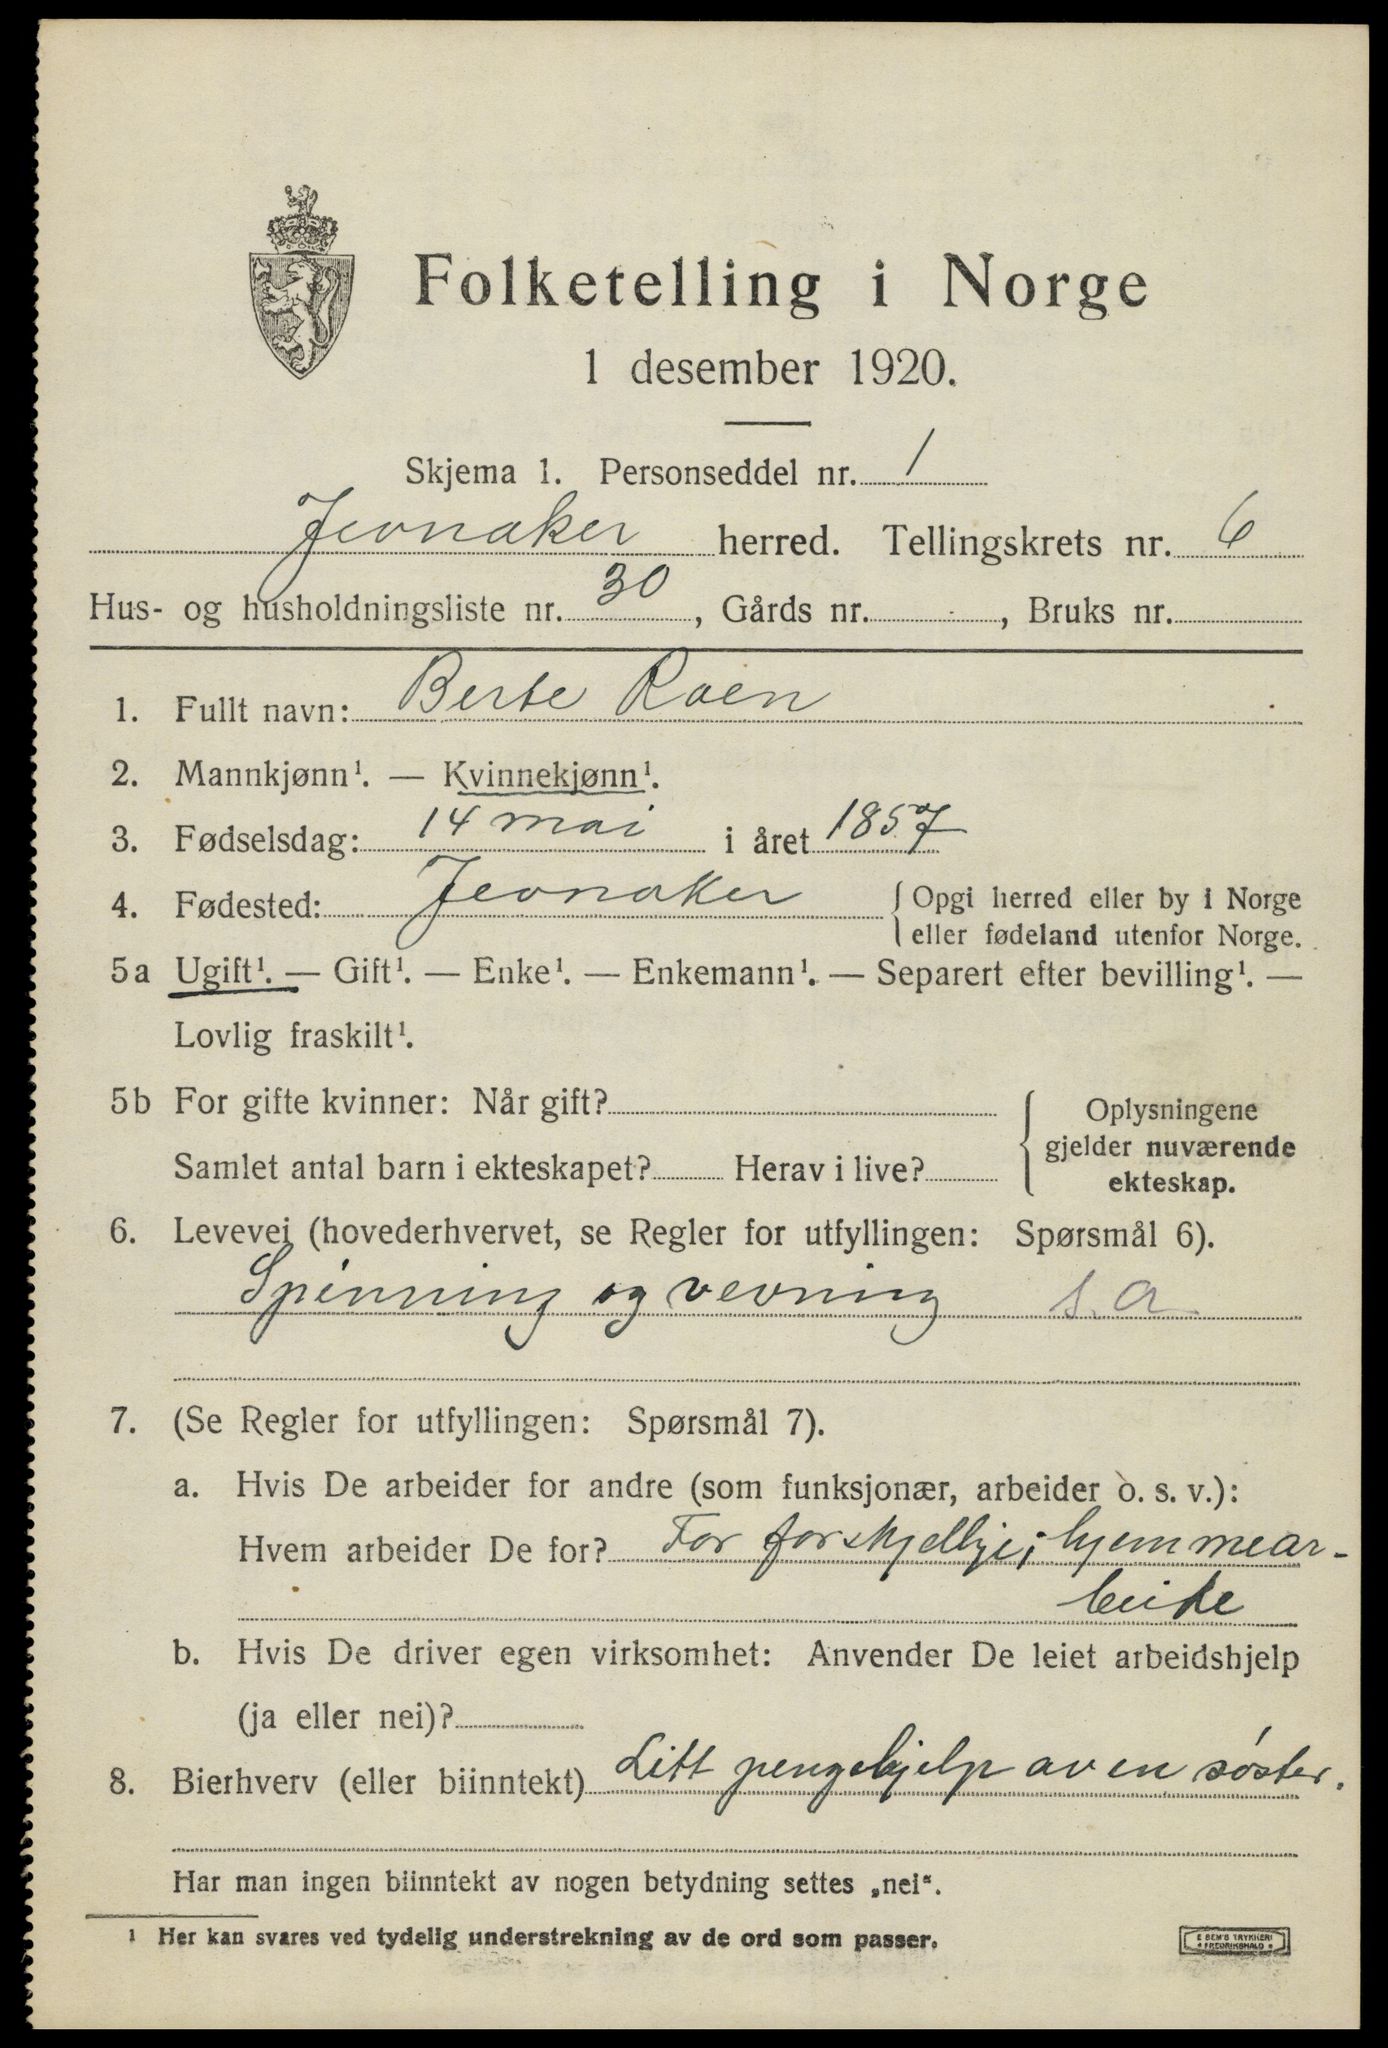 Folketelling i Norge
1 desember 1920.
Skjema 1. Personseddel nr. 1
Jevnaker herred. Tellingskrets nr. 6
Hus- og husholdningsliste nr. 30, Gårds nr. , Bruks nr.
1. Fullt navn: Berte Roen
2. Mannkjønn¹. — Kvinnekjønn¹.
3. Fødselsdag: 14 mai i året 1857
4. Fødested: Jevnaker { Opgi herred eller by i Norge
eller fødeland utenfor Norge.
5a Ugift¹. — Gift¹. — Enke¹. — Enkemann¹. — Separert efter bevilling¹. —
Lovlig fraskilt¹.
5b For gifte kvinner: Når gift? { Oplysningene
gjelder nuværende
Samlet antal barn i ekteskapet? Herav i live?
ekteskap.
6. Levevei (hovederhvervet, se Regler for utfyllingen: Spørsmål 6).
Spinning og vevning s.a
7. (Se Regler for utfyllingen: Spørsmål 7).
a. Hvis De arbeider for andre (som funksjonær, arbeider o. s. v.):
Hvem arbeider De for? For forskjellige; hjemmear-
beide
b. Hvis De driver egen virksomhet: Anvender De leiet arbeidshjelp
(ja eller nei)?
8. Bierhverv (eller biinntekt) Litt pengehjelp av en søster.
Har man ingen biinntekt av nogen betydning settes „nei“.
¹ Her kan svares ved tydelig understrekning av de ord som passer.
E SEM'S TRYKKERI
FREDRIKSHALD